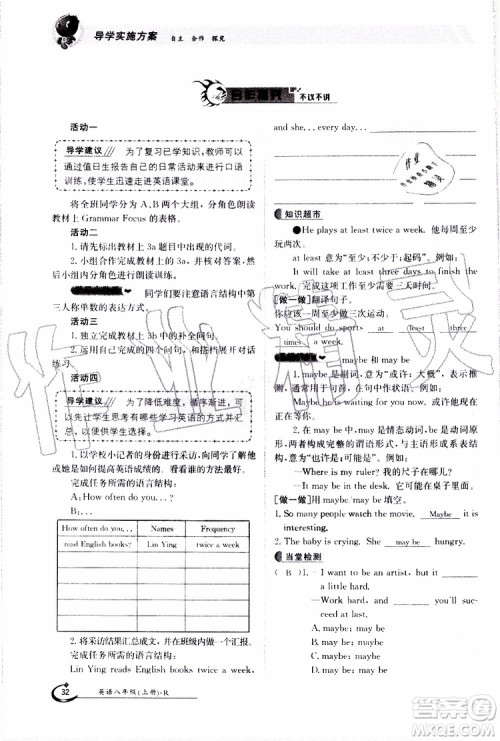 导学实施方案 自主 合作 探究
不议不讲
活动一
导学建议 为了复习已学知识,教师可以
通过值日生报告自己的日常活动来进行口语
训练,使学生迅速进入英语课堂。
将全班同学分为A、B两个大组,分角色朗
读教材上 Grammar Focus 的表格。
活动二
1. 请先标出教材上3a题目中出现的代词。
2. 小组合作完成教材上3a,并核对答案,然
后小组内分角色进行朗读训练。
同学们要注意语言结构中第
三人称单数的表达方式。
活动三
1. 独立完成教材上3b中的补全问句。
2. 运用所给的问句,和搭档进行问答练习。
活动四
导学建议 为了降低难度,循序渐进,可
以先让学生思考有哪些学习英语的方式并汇
总,以供参考。
1. 以学校小记者的身份进行采访,询问他
或她是如何提高英语成绩的。看看谁的方法最好。
完成任务所需的语言结构:
A: How often do you...?
B: ...
How often do you...? Names Frequency
read English books? Lin Ying twice a week
2. 将采访结果汇总成文,并在全班做个汇报。
完成任务所需的语言结构:
Lin Ying reads English books twice a week,
32 英语八年级(上册)·R
and she, ... every...
知识超市
●He plays at least twice a week. 他每周至少
玩两次。
at least 意为“至少;不少于;起码”。例如:
It will take at least three days to finish the
work. 完成这项工作至少需要三天时间。
[做一做] 翻译句子。
你应该每周至少做三次运动。
You should do sports at least three
times a week.
maybe 和 may be
1. maybe 是副词,意为“或许;大概”,表推
测。例如:
Maybe he is waiting for you now.
或许他现在正在等你。
2. may be 中,may 是情态动词,be 是动词,
两者构成完整的谓语形式,与主语形成系表结构,
意为“也许是;可能是”。例如:
—Where is my ruler? 我的尺子在哪儿?
—It may be over there. 可能在那儿。
[做一做] 用 maybe/may be 填空。
1. So many people search for it. Maybe it is
interesting.
2. The baby is crying. She may be hungry.
当堂检测
( B )1. —I want to be an actor. I want to be
a little hard.
—Work hard, and you'll suc-
ceed at last.
A. maybe; maybe
B. may be; maybe
C. may be; may be
D. maybe; may be